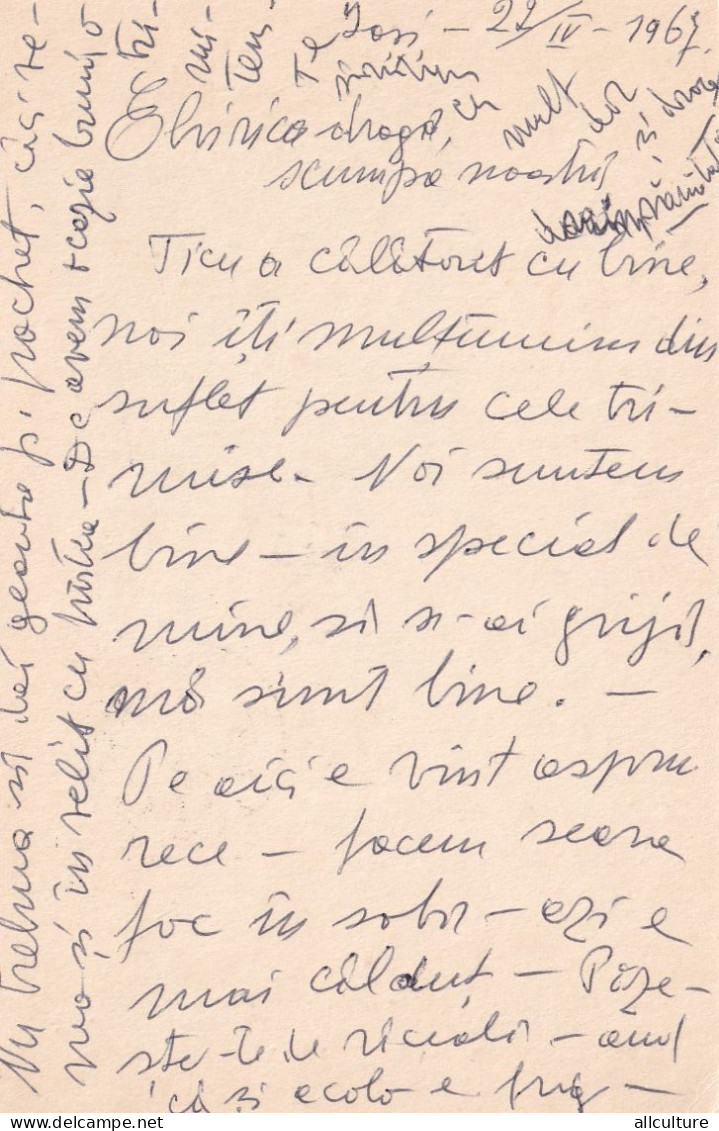 Iași - 22/IV - 1967.
Elvirica dragă,
scumpa noastră
Ticu a călătorit cu bine,
noi îți mulțumim din
suflet pentru cele tri-
mise. Noi suntem
bine - în special de
mine, să n-ai grijă,
mă simt bine. -
Pe aici e vînt aspru
rece - facem seara
foc în sobă - azi e
mai călduț - Păze-
ște-te de răceală - aud
că și acolo e frig -
Nu trebuia să dai geanta și pachet, căci te-
De avem ocazie bună o
tri-
mi-
tem
Te
sărutăm
cu
mult
dor
și drag